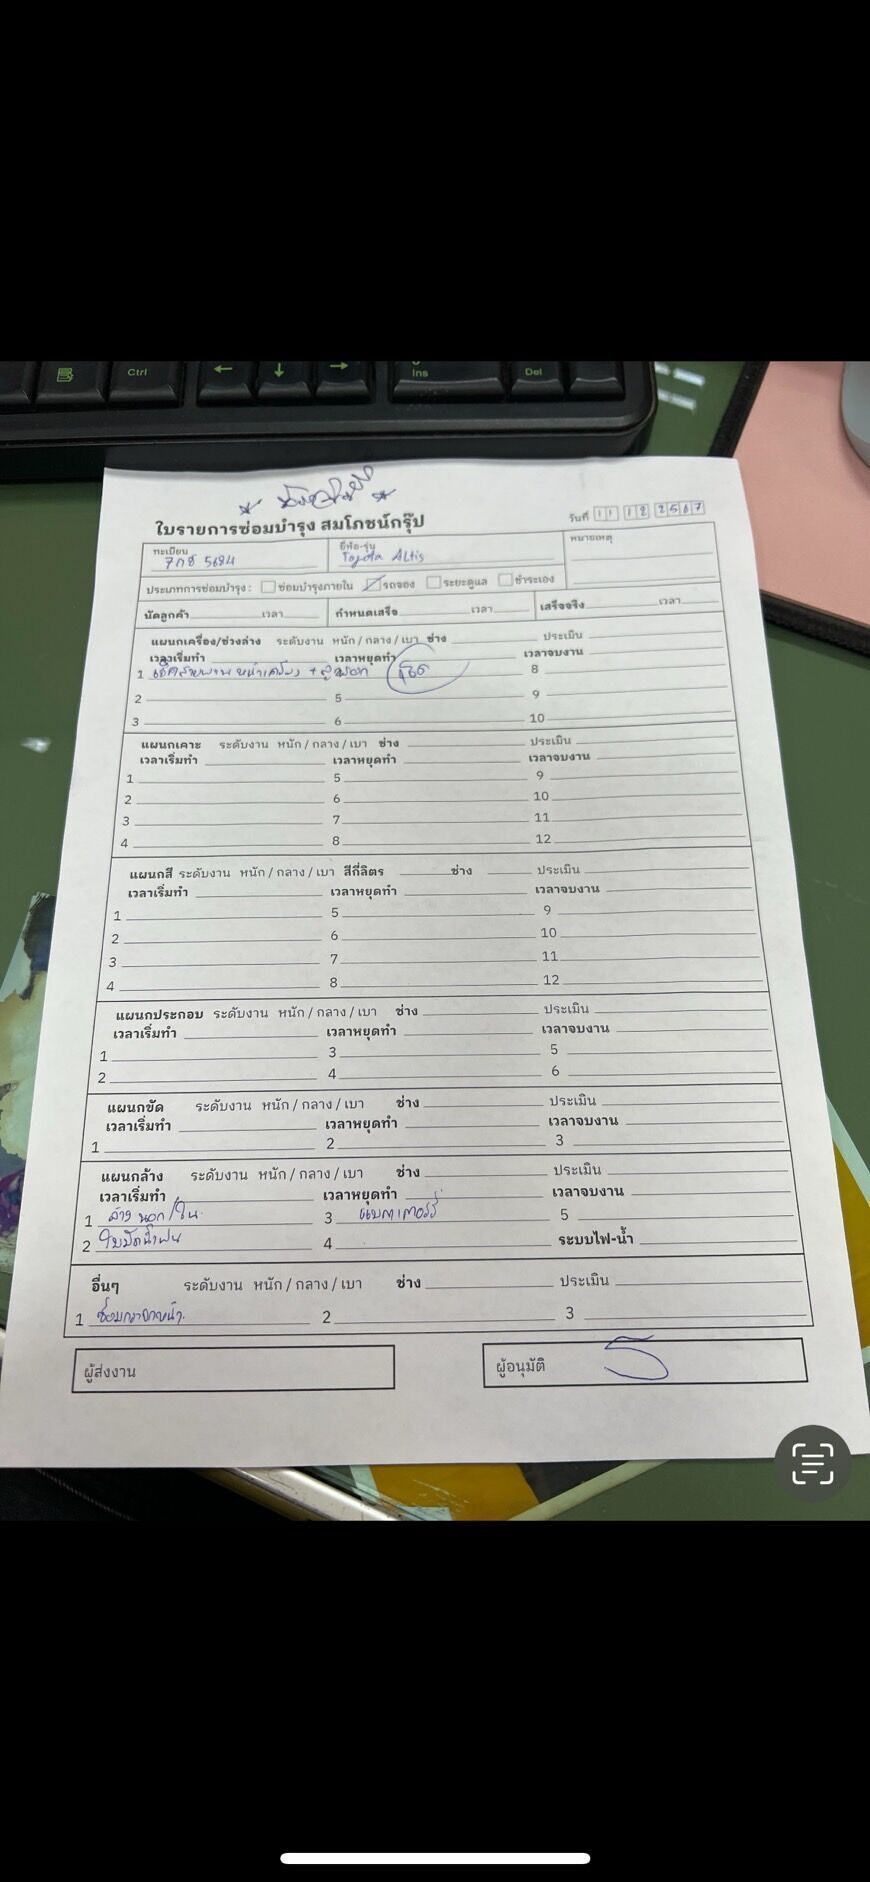 Ctrl
Ins
Del
ใบรายการซ่อมบำรุง สมโภชน์กรุ๊ป
วันที่ 11 12 2567
ทะเบียน ยี่ห้อ-รุ่น หมายเหตุ
5684 Toyota Altis
ประเภทการซ่อมบำรุง : ซ่อมบำรุงภายใน รถจอง ระยะดูแล ชำระเอง
นัดลูกค้า เวลา กำหนดเสร็จ เวลา เสร็จจริง เวลา
แผนกเครื่อง/ช่วงล่าง ระดับงาน หนัก / กลาง / เบา ช่าง ประเมิน
เวลาเริ่มทำ เวลาหยุดทำ เวลาจบงาน
1 เช็คสายพานหน้าเครื่อง + ลูกรอก 8
2 5 9
3 6 10
แผนกเคาะ ระดับงาน หนัก / กลาง / เบา ช่าง ประเมิน
เวลาเริ่มทำ เวลาหยุดทำ เวลาจบงาน
1 5 9
2 6 10
3 7 11
4 8 12
แผนกสี ระดับงาน หนัก / กลาง / เบา สีกี่ลิตร ช่าง ประเมิน
เวลาเริ่มทำ เวลาหยุดทำ เวลาจบงาน
1 5 9
2 6 10
3 7 11
4 8 12
แผนกประกอบ ระดับงาน หนัก / กลาง / เบา ช่าง ประเมิน
เวลาเริ่มทำ เวลาหยุดทำ เวลาจบงาน
1 3 5
2 4 6
แผนกขัด ระดับงาน หนัก / กลาง / เบา ช่าง ประเมิน
เวลาเริ่มทำ เวลาหยุดทำ เวลาจบงาน
1 2 3
แผนกล้าง ระดับงาน หนัก / กลาง / เบา ช่าง ประเมิน
เวลาเริ่มทำ เวลาหยุดทำ เวลาจบงาน
1 ล้าง นอก/ใน 3 แบตเตอร์รี่ 5
2 ใบปัดน้ำฝน 4 ระบบไฟ-น้ำ
อื่นๆ ระดับงาน หนัก / กลาง / เบา ช่าง ประเมิน
1 ซ่อมกระจกหน้า 2 3
ผู้ส่งงาน ผู้อนุมัติ